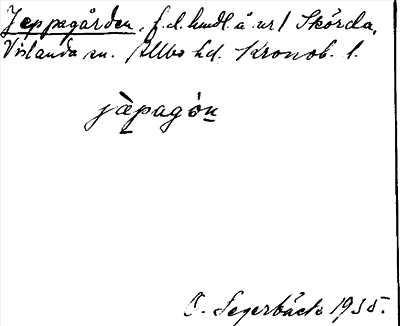 Jeppagården, f.d. hmdl å nr 1 Skörda,
Vislanda sn. Allbo hd. Kronob. l.
jàpagón
O. Segerbäck 1935.